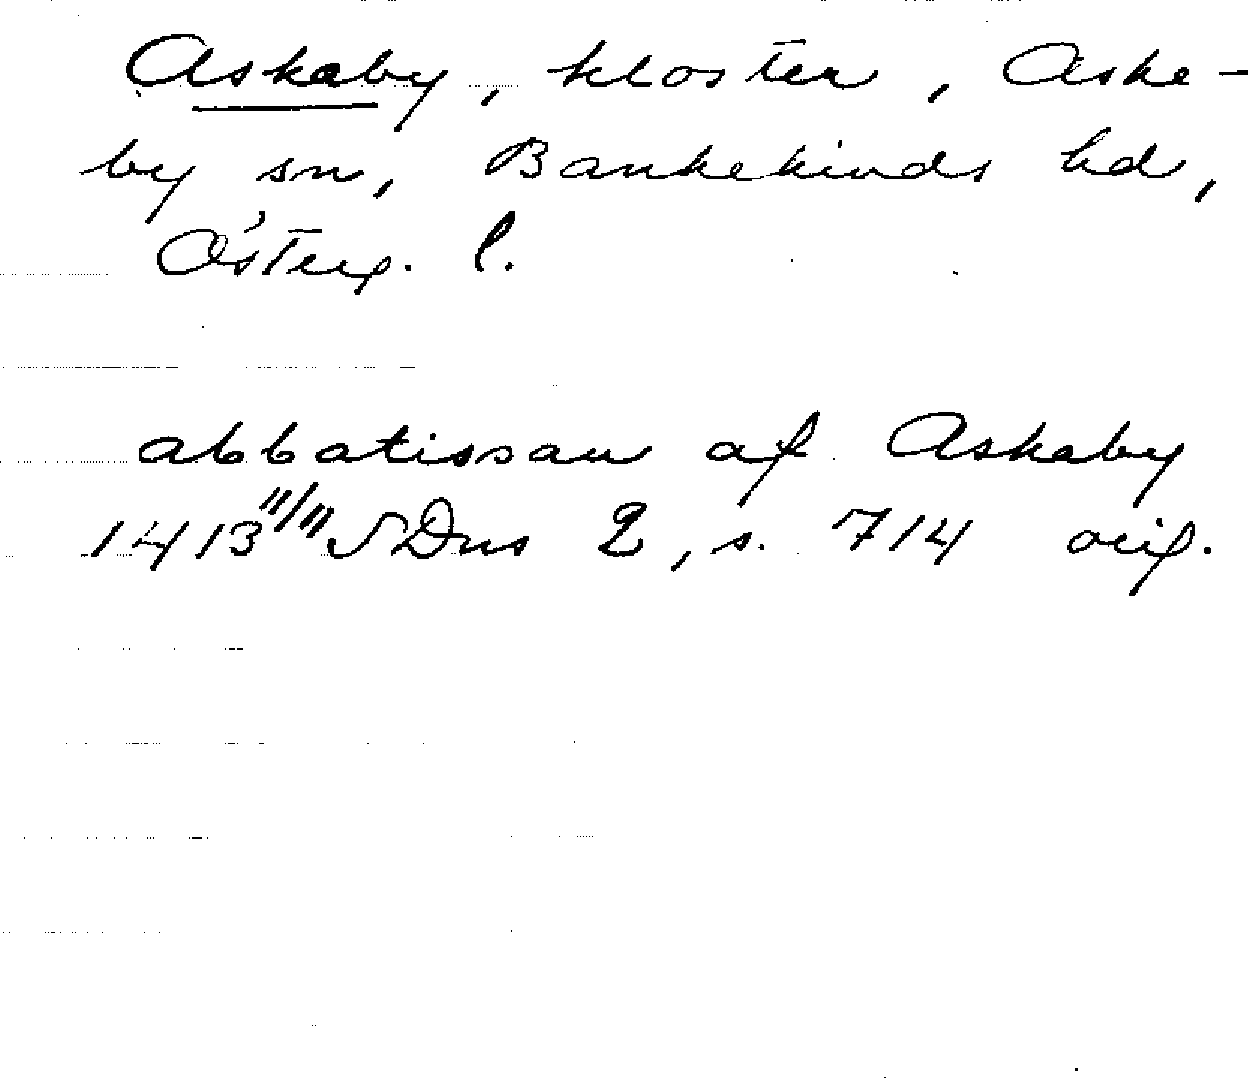 Askaby, kloster, Aske-
by sn, Bankekinds hd,
Österg. l.
abbatissan af Askaby
1413 11/11 SDns 2, s. 714 orig.